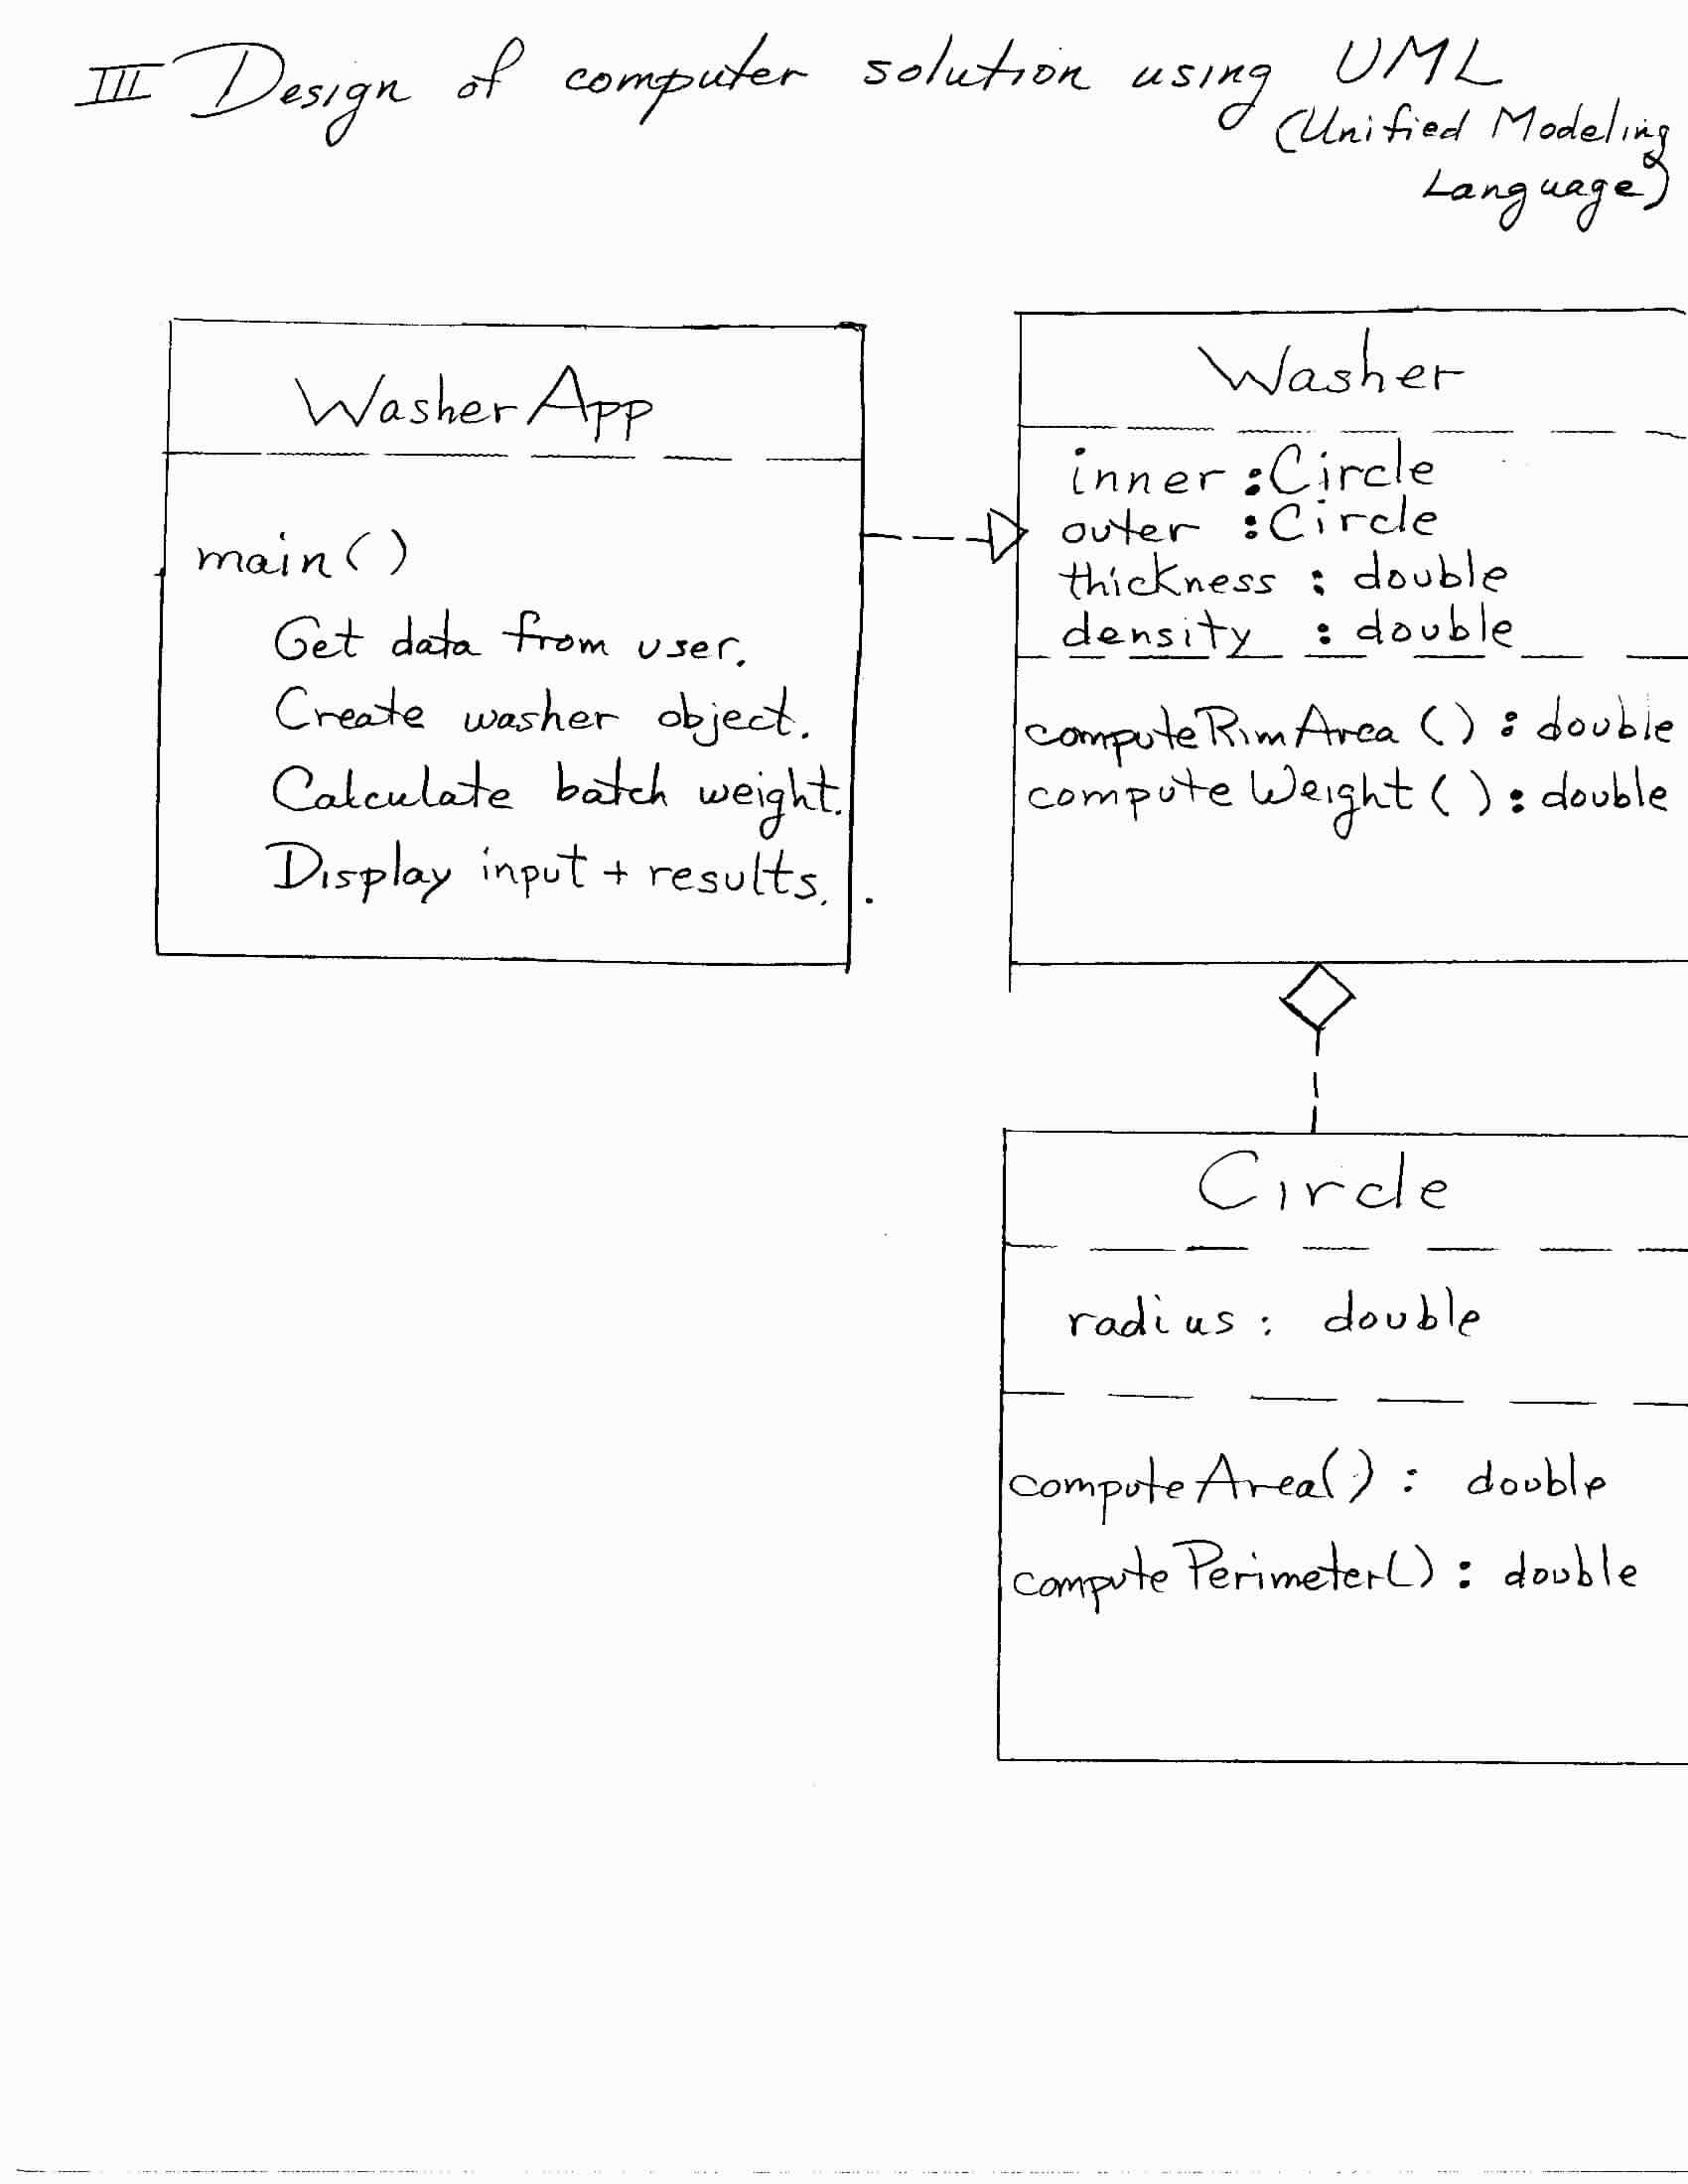 III Design of computer solution using UML
(Unified Modeling
Language)
WasherApp
main()
Get data from user.
Create washer object.
Calculate batch weight.
Display input + results.
Washer
inner :Circle
outer :Circle
thickness : double
density : double
computeRimArea () : double
computeWeight () : double
Circle
radius : double
computeArea() : double
computePerimeter() : double